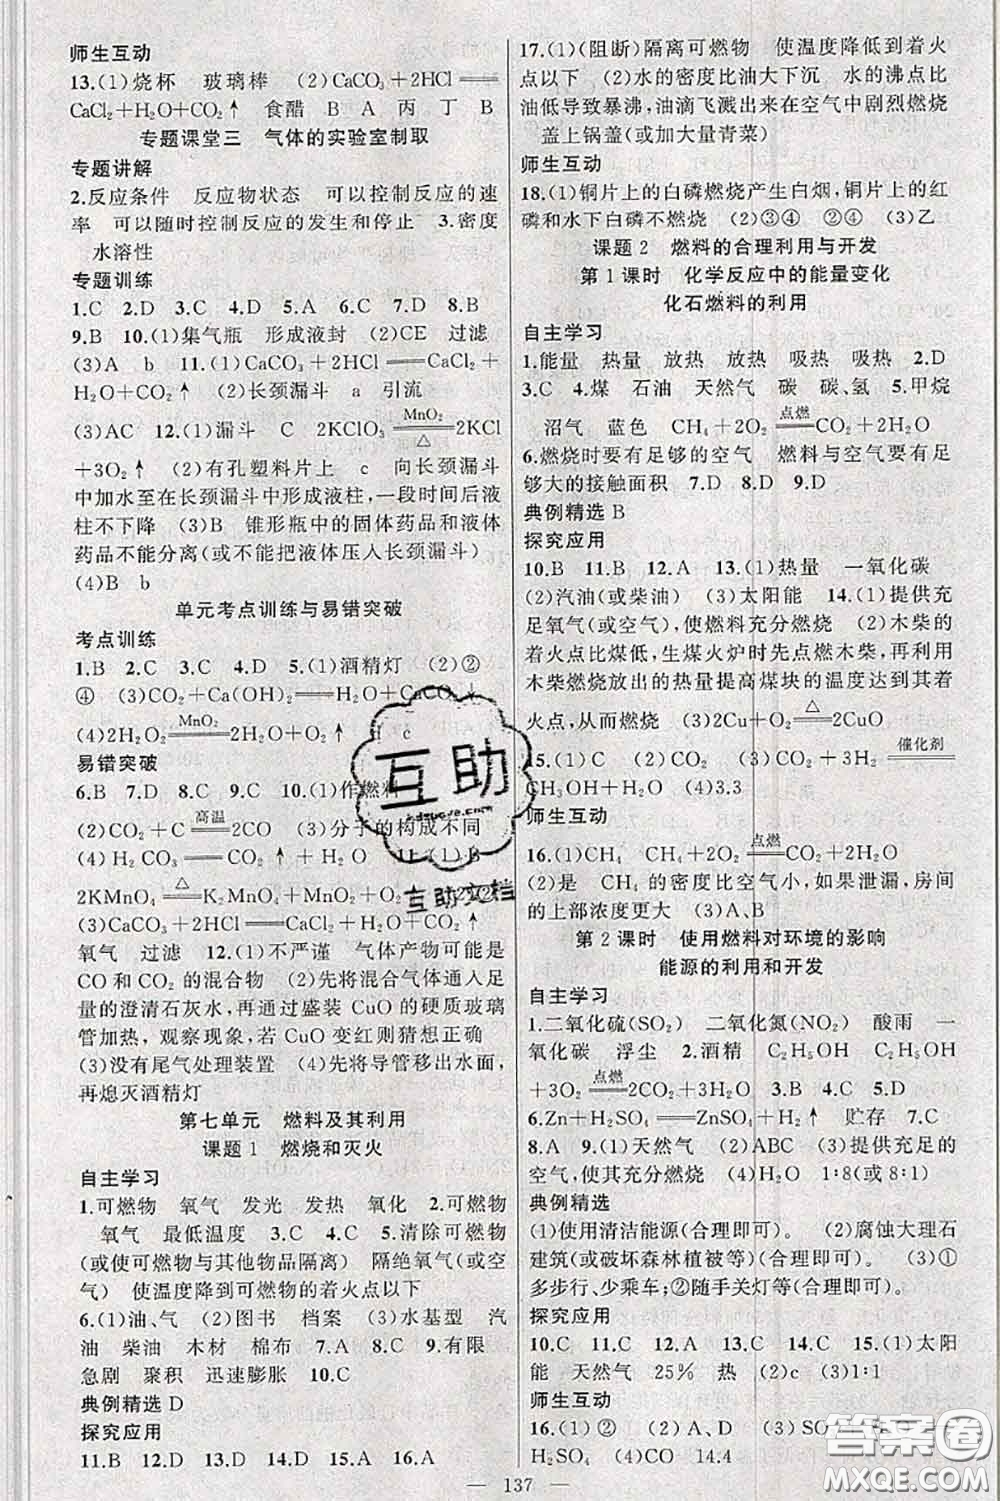 师生互动
13.(1)烧杯 玻璃棒 (2)CaCO₃+2HCl══
CaCl₂+H₂O+CO₂↑ 食醋 B A 丙 丁 B
专题课堂三 气体的实验室制取
专题讲解
2.反应条件 反应物状态 可以控制反应的速
率 可以随时控制反应的发生和停止 3.密度
水溶性
专题训练
1.C 2.D 3.C 4.D 5.A 6.C 7.D 8.B
9.B 10.(1)集气瓶 形成液封 (2)CE 过滤
(3)A b 11.(1)CaCO₃+2HCl══CaCl₂+
H₂O+CO₂↑ (2)长颈漏斗 a 引流
(3)AC 12.(1)漏斗 C 2KClO₃ MnO₂ ══ △ 2KCl
+3O₂↑ (2)有孔塑料片上 c 向长颈漏斗
中加水至在长颈漏斗中形成液柱,一段时间后液
柱不下降 (3)B 锥形瓶中的固体药品和液体
药品不能分离(或不能把液体压人长颈漏斗)
(4)B b
单元考点训练与易错突破
考点训练
1.B 2.C 3.C 4.D 5.(1)酒精灯 (2)②
④ (3)CO₂+Ca(OH)₂══H₂O+CaCO₃↓
(4)2H₂O₂ MnO₂ ══ 2H₂O+O₂↑ c
易错突破
6.B 7.D 8.C 9.C 10.(1)作燃料
(2)CO₂+C 高温 ══ 2CO (3)分子的构成不同
(4)H₂CO₃══CO₂↑+H₂O 11.(1)B
2KMnO₄ △ ══ K₂MnO₄+MnO₂+O₂↑
(3)CaCO₃+2HCl══CaCl₂+H₂O+CO₂↑
氧气 过滤 12.(1)不严谨 气体产物可能是
CO和CO₂的混合物 (2)先将混合气体通入足
量的澄清石灰水,再通过盛装CuO的硬质玻璃
管加热,观察现象,若CuO变红则猜想正确
(3)没有尾气处理装置 (4)先将导管移出水面,
再熄灭酒精灯
第七单元 燃料及其利用
课题1 燃烧和灭火
自主学习
1.可燃物 氧气 发光 发热 氧化 2.可燃物
氧气 最低温度 3.C 4.C 5.清除可燃物
(或使可燃物与其他物品隔离) 隔绝氧气(或空
气) 使温度降到可燃物的着火点以下
6.(1)油、气 (2)图书 档案 (3)水基型 汽
油 柴油 木材 棉布 7.A 8.C 9.有限
急剧 聚积 迅速膨胀 10.C
典例精选 D
探究应用
11.B 12.D 13.D 14.D 15.A 16.A
17.(1)(阻断)隔离可燃物 使温度降低到着火
点以下 (2)水的密度比油大下沉 水的沸点比
油低导致暴沸,油滴飞溅出来在空气中剧烈燃烧
盖上锅盖(或加大量青菜)
师生互动
18.(1)铜片上的白磷燃烧产生白烟,铜片上的红
磷和水下白磷不燃烧 (2)③④ ②④ (3)乙
课题2 燃料的合理利用与开发
第1课时 化学反应中的能量变化
化石燃料的利用
自主学习
1.能量 热量 放热 放热 吸热 吸热 2.D
3.C 4.煤 石油 天然气 碳 碳、氢 5.甲烷
沼气 蓝色 CH₄+2O₂ 点燃 ══ CO₂+2H₂O
6.燃烧时要有足够的空气 燃料与空气要有足
够大的接触面积 7.D 8.D 9.D
典例精选 B
探究应用
10.B 11.B 12.A 13.(1)热量 一氧化碳
(2)汽油(或柴油) (3)太阳能 14.(1)提供充
足氧气(或空气),使燃料充分燃烧 (2)木柴的
着火点比煤低,生煤火炉时先点燃木柴,再利用
木柴燃烧放出的热量提高煤块的温度达到其着
火点,从而燃烧 (3)2Cu+O₂ △ ══ 2CuO
15.(1)C (2)C (3)CO₂+3H₂ 催化剂 ══
CH₃OH+H₂O (4)3.3
师生互动
16.(1)CH₄ CH₄+2O₂ 点燃 ══ CO₂+2H₂O
(2)是 CH₄的密度比空气小,如果泄漏,房间
的上部浓度更大 (3)A、B
第2课时 使用燃料对环境的影响
能源的利用和开发
自主学习
1.二氧化硫(SO₂) 二氧化氮(NO₂) 酸雨 一
氧化碳 浮尘 2.酒精 C₂H₅OH C₂H₅OH
+3O₂ 点燃 ══ 2CO₂+3H₂O 3.B 4.C 5.D
6.Zn+H₂SO₄══ZnSO₄+H₂↑ 贮存 7.C
8.A 9.(1)天然气 (2)ABC (3)提供充足的
空气,使其充分燃烧 (4)H₂O 1:8(或8:1)
典例精选
(1)使用清洁能源(合理即可)。 (2)腐蚀大理石
建筑(或破坏森林植被等)(合理即可) (3)①
多步行、少乘车;②随手关灯等(合理即可)。
探究应用
10.C 11.C 12.A 13.C 14.C 15.(1)太阳
能 天然气 25% 热 (2)c (3)1:1
师生互动
16.(1)② (2)A、D (3)SO
H₂SO₄ (4)CO 14.4
137
互助
互助文档
答案圈
MXQE.COM